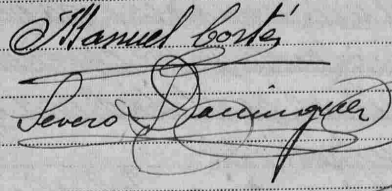 Manuel Cortés
Severo Dominguez